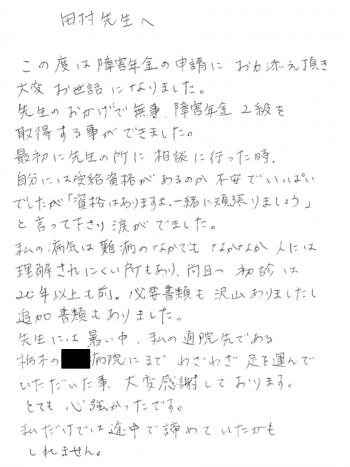 田村先生へ
この度は障害年金の申請にお力添え頂き
大変お世話になりました。
先生のおかげで無事、障害年金2級を
取得する事ができました。
最初に先生の所に相談に行った時、
自分には受給資格があるのか不安でいっぱい
でしたが「資格はありますよ、一緒に頑張りましょう」
と言って下さり涙がでました。
私の病気は難病のなかでもなかなか人には
理解されにくい所もあり、尚且つ初診は
20年以上も前。必要書類も沢山ありましたし
追加書類もありました。
先生には暑い中、私の通院先である
栃木の病院にまでわざわざ足を運んで
いただいた事、大変感謝しております。
とても心強かったです。
私だけでは途中で諦めていたかも
しれません。